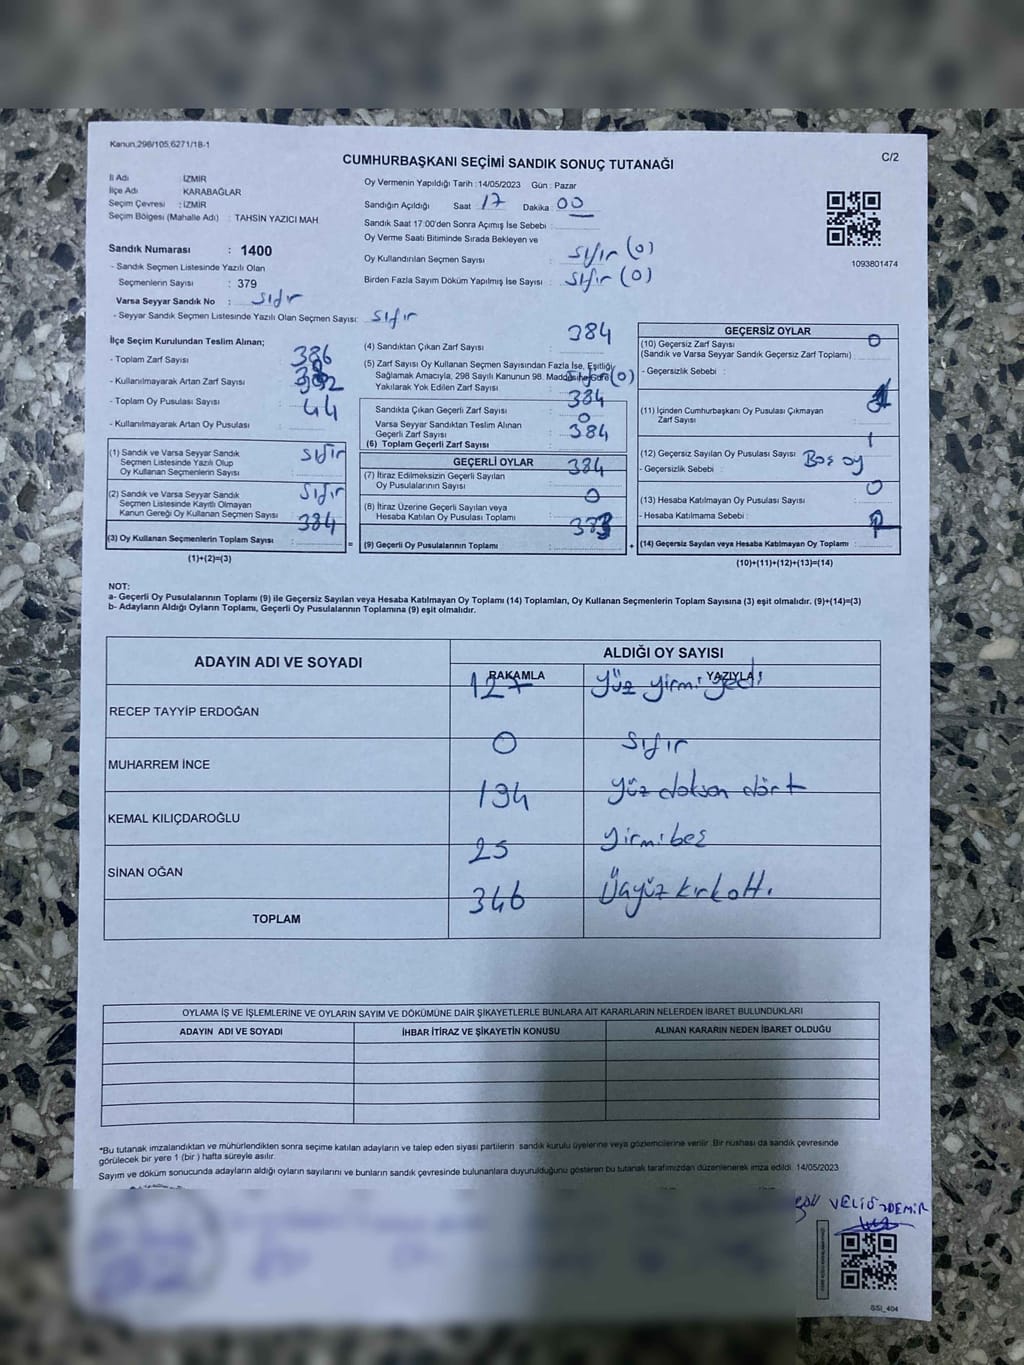 Kanun,298/105,6271/18-1
CUMHURBAŞKANI SEÇİMİ SANDIK SONUÇ TUTANAĞI
C/2
İl Adı : İZMİR
İlçe Adı : KARABAĞLAR
Seçim Çevresi : İZMİR
Seçim Bölgesi (Mahalle Adı) : TAHSİN YAZICI MAH
Sandık Numarası : 1400
- Sandık Seçmen Listesinde Yazılı Olan
Seçmenlerin Sayısı : 379
Varsa Seyyar Sandık No : sıfır
- Seyyar Sandık Seçmen Listesinde Yazılı Olan Seçmen Sayısı: sıfır
Oy Vermenin Yapıldığı Tarih : 14/05/2023 Gün : Pazar
Sandığın Açıldığı Saat 17 Dakika : 00
Sandık Saat 17:00'den Sonra Açımış İse Sebebi :
Oy Verme Saati Bitiminde Sırada Bekleyen ve
Oy Kullandırılan Seçmen Sayısı : sıfır (0)
Birden Fazla Sayım Döküm Yapılmış İse Sayısı : sıfır (0)
1093801474
İlçe Seçim Kurulundan Teslim Alınan;
- Toplam Zarf Sayısı : 386
- Kullanılmayarak Artan Zarf Sayısı :
- Toplam Oy Pusulası Sayısı :
- Kullanılmayarak Artan Oy Pusulası : 44
(1) Sandık ve Varsa Seyyar Sandık
Seçmen Listesinde Yazılı Olup
Oy Kullanan Seçmenlerin Sayısı : sıfır
(2) Sandık ve Varsa Seyyar Sandık
Seçmen Listesinde Kayıtlı Olmayan
Kanun Gereği Oy Kullanan Seçmen Sayısı : sıfır
(3) Oy Kullanan Seçmenlerin Toplam Sayısı : 384
(1)+(2)=(3)
(4) Sandıktan Çıkan Zarf Sayısı : 384
(5) Zarf Sayısı Oy Kullanan Seçmen Sayısından Fazla İse, Eşitliği
Sağlamak Amacıyla, 298 Sayılı Kanunun 98. Maddesine Göre (0)
Yakılarak Yok Edilen Zarf Sayısı :
384
Sandıkta Çıkan Geçerli Zarf Sayısı :
0
Varsa Seyyar Sandıktan Teslim Alınan
Geçerli Zarf Sayısı : 384
(6) Toplam Geçerli Zarf Sayısı
GEÇERLİ OYLAR
384
(7) İtiraz Edilmeksizin Geçerli Sayılan
Oy Pusulalarının Sayısı :
0
(8) İtiraz Üzerine Geçerli Sayılan veya
Hesaba Katılan Oy Pusulası Toplamı : 383
= (9) Geçerli Oy Pusulalarının Toplamı :
GEÇERSİZ OYLAR
(10) Geçersiz Zarf Sayısı 0
(Sandık ve Varsa Seyyar Sandık Geçersiz Zarf Toplamı)
- Geçersizlik Sebebi :
(11) İçinden Cumhurbaşkanı Oy Pusulası Çıkmayan
Zarf Sayısı :
1
(12) Geçersiz Sayılan Oy Pusulası Sayısı : Boş oy
- Geçersizlik Sebebi :
0
(13) Hesaba Katılmayan Oy Pusulası Sayısı :
- Hesaba Katılmama Sebebi :
+ (14) Geçersiz Sayılan veya Hesaba Katılmayan Oy Toplamı :
(10)+(11)+(12)+(13)=(14)
NOT:
a- Geçerli Oy Pusulalarının Toplamı (9) ile Geçersiz Sayılan veya Hesaba Katılmayan Oy Toplamı (14) Toplamları, Oy Kullanan Seçmenlerin Toplam Sayısına (3) eşit olmalıdır. (9)+(14)=(3)
b- Adayların Aldığı Oyların Toplamı, Geçerli Oy Pusulalarının Toplamına (9) eşit olmalıdır.
ADAYIN ADI VE SOYADI
ALDIĞI OY SAYISI
RAKAMLA YAZIYLA
127 yüz yirmi yedi
RECEP TAYYİP ERDOĞAN
0 sıfır
MUHARREM İNCE
194 yüz doksan dört
KEMAL KILIÇDAROĞLU
25 yirmi beş
SİNAN OĞAN
346 Üçyüz kırk altı
TOPLAM
OYLAMA İŞ VE İŞLEMLERİNE VE OYLARIN SAYIM VE DÖKÜMÜNE DAİR ŞİKAYETLERLE BUNLARA AİT KARARLARIN NELERDEN İBARET BULUNDUKLARI
ADAYIN ADI VE SOYADI İHBAR İTİRAZ VE ŞİKAYETİN KONUSU ALINAN KARARIN NEDEN İBARET OLDUĞU
*Bu tutanak imzalandıktan ve mühürlendikten sonra seçime katılan adayların ve talep eden siyasi partilerin sandık kurulu üyelerine veya gözlemcilerine verilir. Bir nüshası da sandık çevresinde
görülecek bir yere 1 (bir ) hafta süreyle asılır.
Sayım ve döküm sonucunda adayların aldığı oyların sayılarını ve bunların sandık çevresinde bulunanlara duyurulduğunu gösteren bu tutanak tarafımızdan düzenlenerek imza edildi. 14/05/2023
VELİ ÖZDEMİR
SSI_404